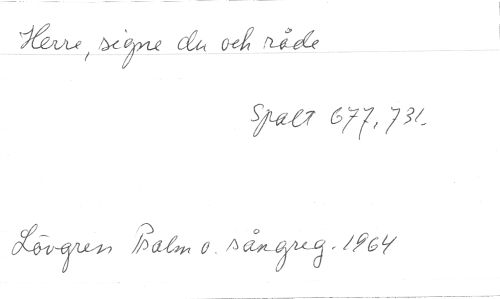 Herre, signe du och råde
Spalt 677, 731.
Lövgren Psalm o. sångreg. 1964